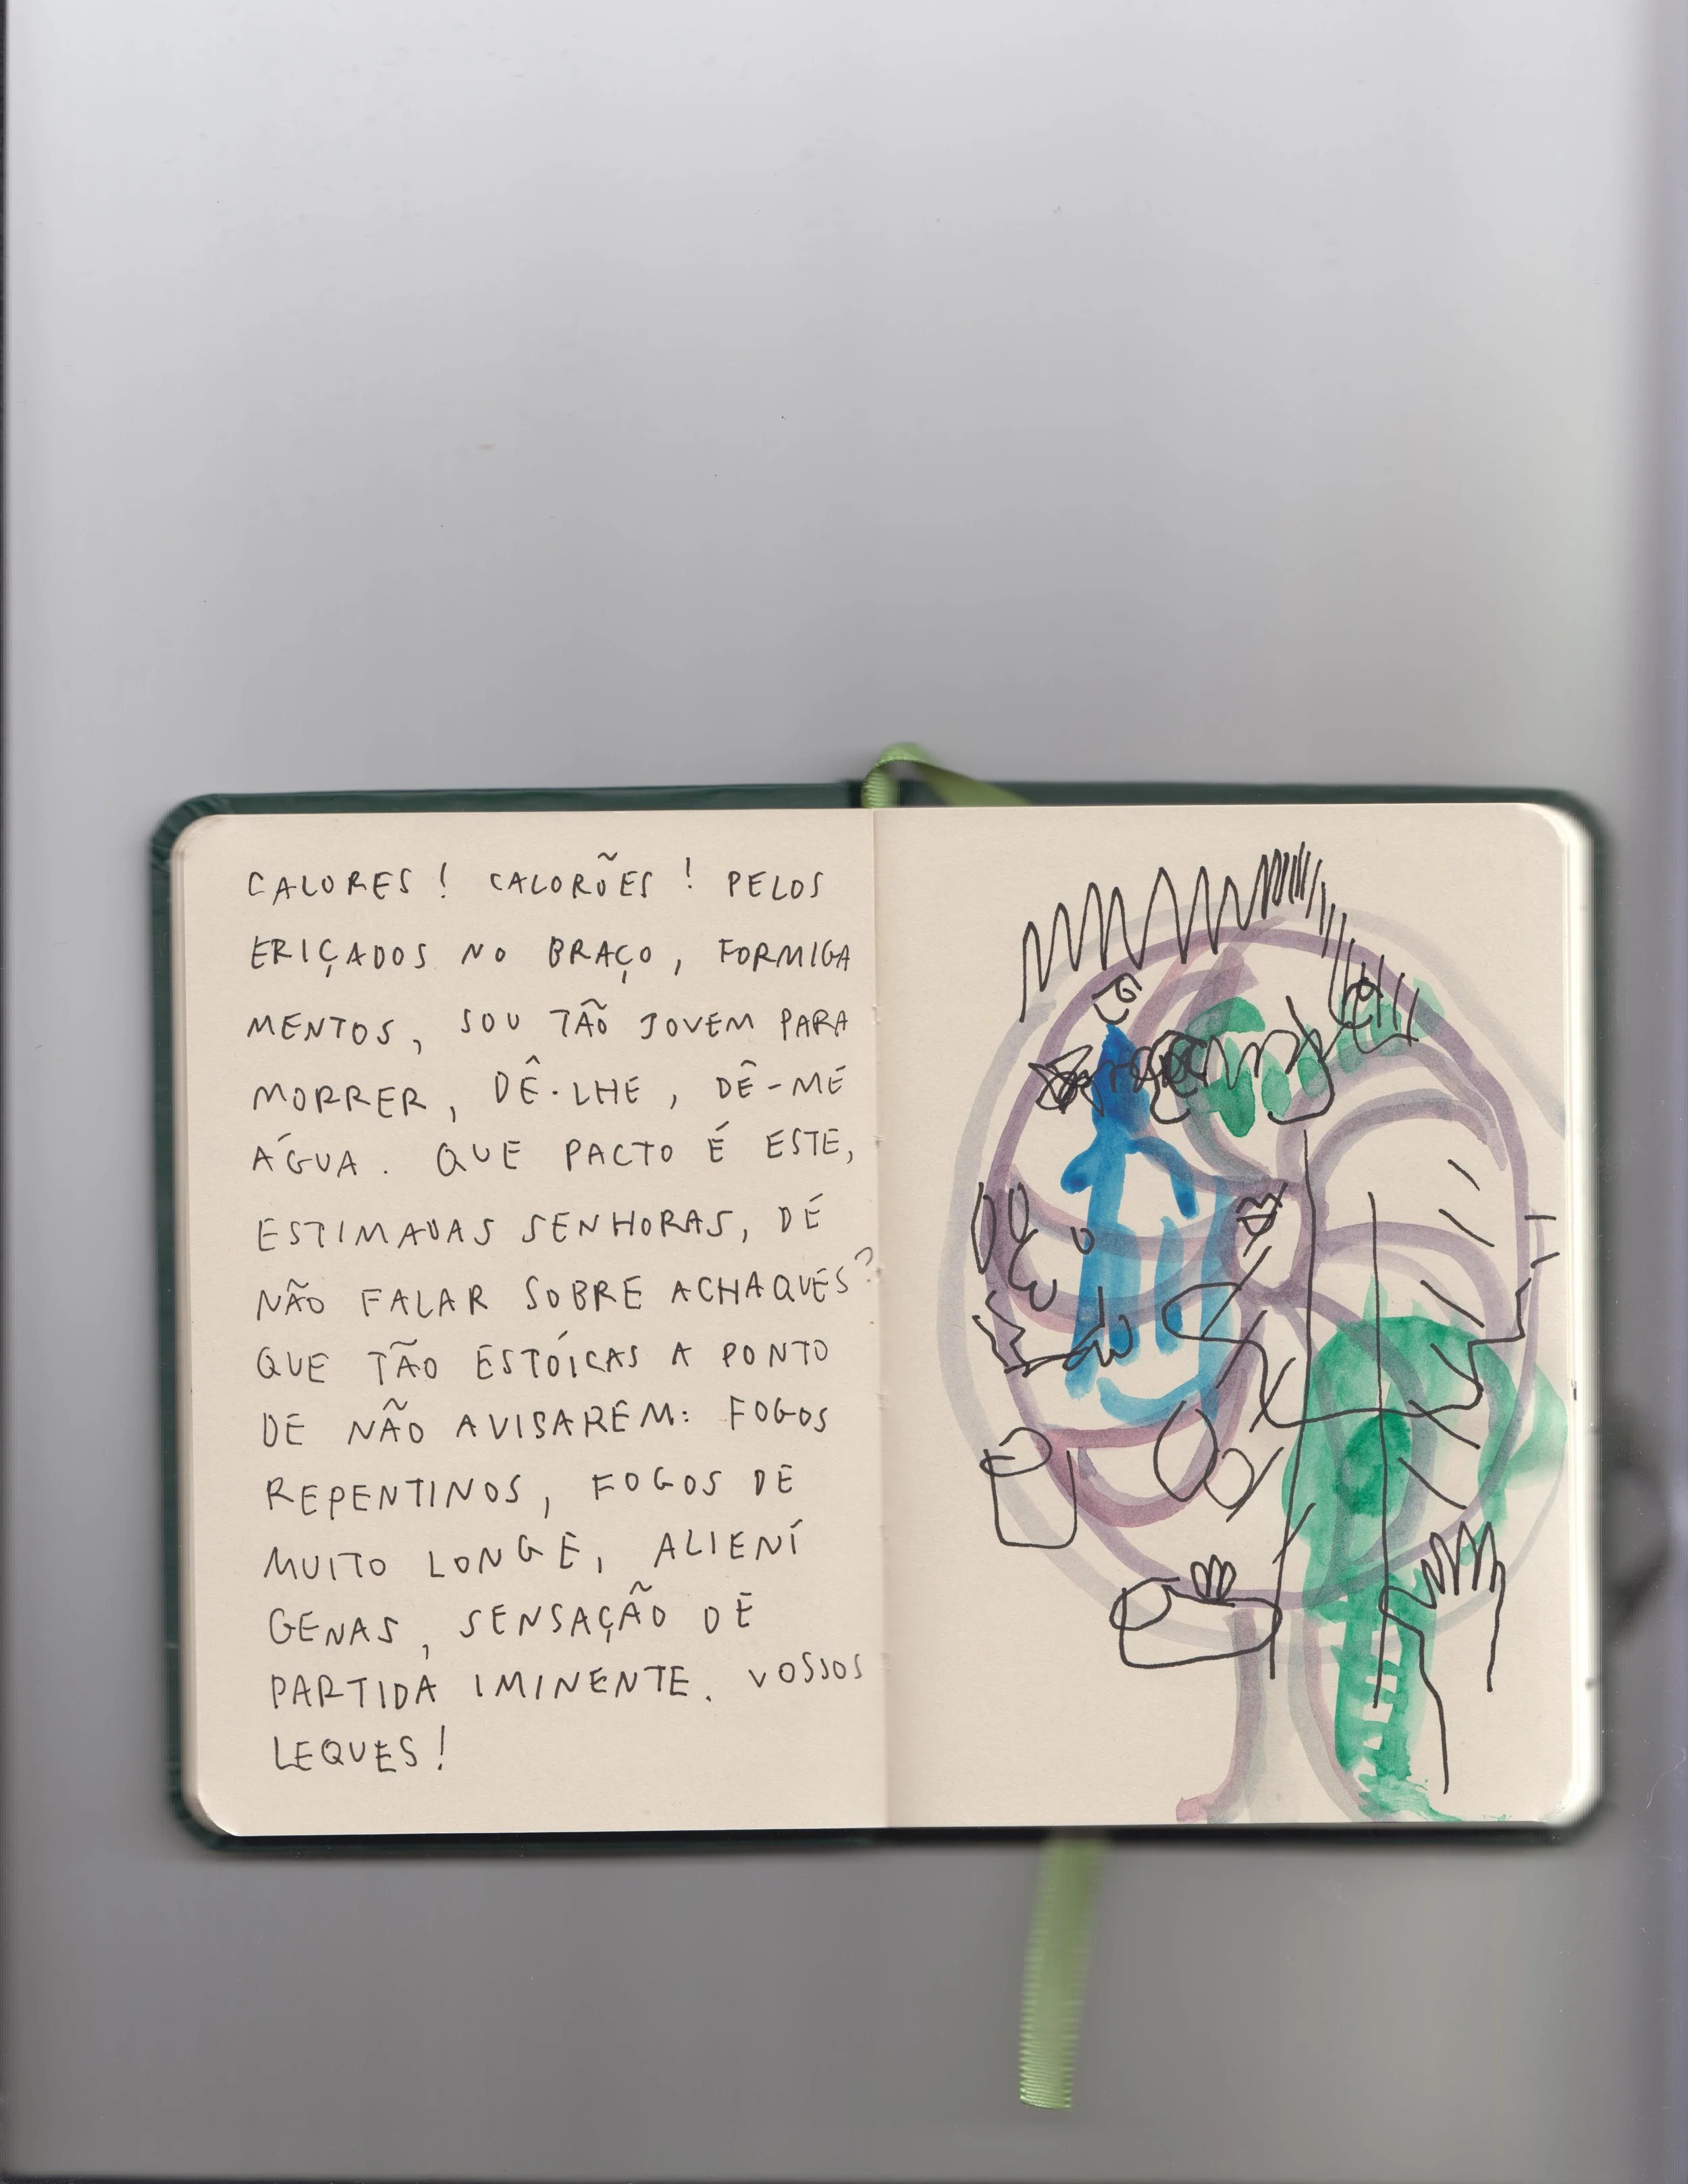 CALORES! CALORÕES! PELOS
ERIÇADOS NO BRAÇO, FORMIGA
MENTOS, SOU TÃO JOVEM PARA
MORRER, DÊ-LHE, DÊ-ME
ÁGUA. QUE PACTO É ESTE,
ESTIMADAS SENHORAS, DE
NÃO FALAR SOBRE ACHAQUES?
QUE TÃO ESTÓICAS A PONTO
DE NÃO AVISAREM: FOGOS
REPENTINOS, FOGOS DE
MUITO LONGE, ALIENÍ
GENAS, SENSAÇÃO DE
PARTIDA IMINENTE. VOSSOS
LEQUES!